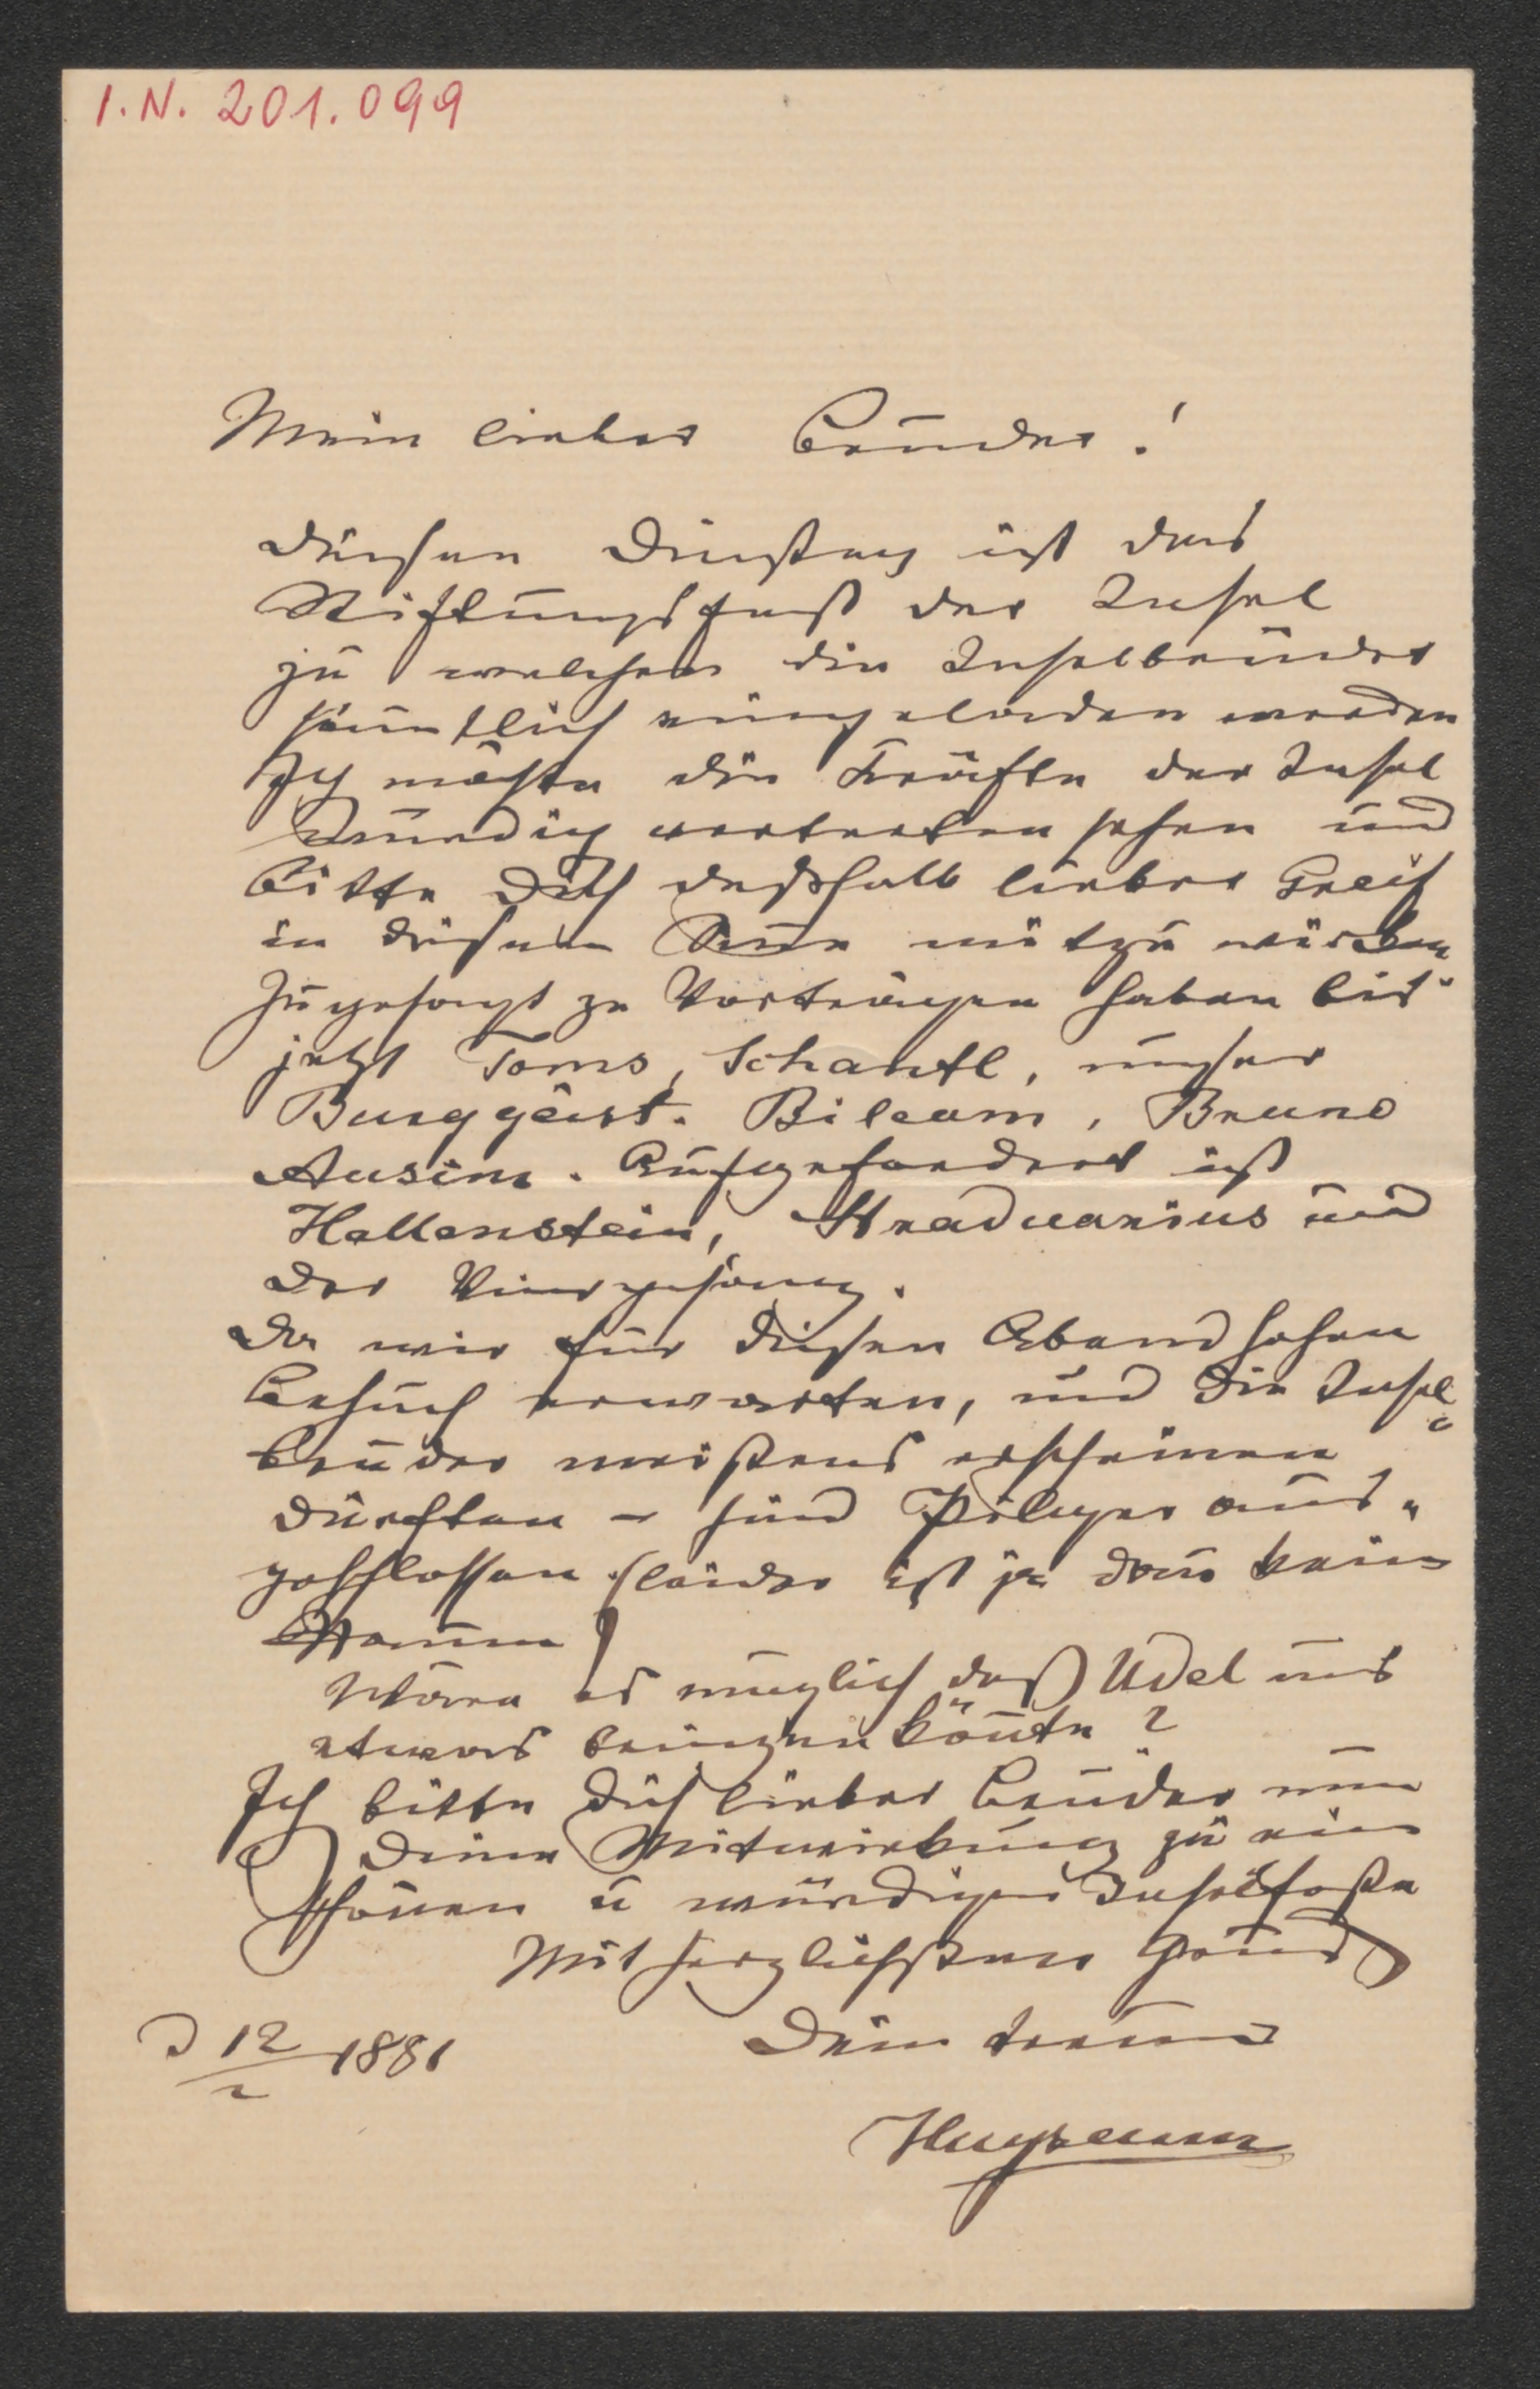 I.N. 201.099
Mein lieber Bruder!
diesen Dienstag ist das
Stiftungsfest der Insel
zu welchem die Inselbrüder
sämtlich eingeladen werden
Ich möchte die Kräfte der Insel
würdig vertreten sehen und
bitte Dich deßhalb lieber Greif
in diesem Sinne mitzuwirken
Zugesagt zu Vorträgen haben bis
jetzt Toms, Schantl, unser
Burggeist. Bileam, Bruno
Ausim. Aufgefordert ist
Hallenstein, Straduarius und
der Viergesang.
Da wir für diesen Abend hohen
Besuch erwarten, und die Insel
brüder meistens erscheinen
dürften – sind Pilger aus"
geschlossen (leider ist ja dann kein
Raum)
Wäre es möglich daß Udel uns
etwas bringen könnte?
Ich bitte Dich lieber Bruder um
Deine Mitwirkung zu ein
schönen u würdigen Inselfeste
Mit herzlichstem Gruß
Dein treuer
12/2 1881